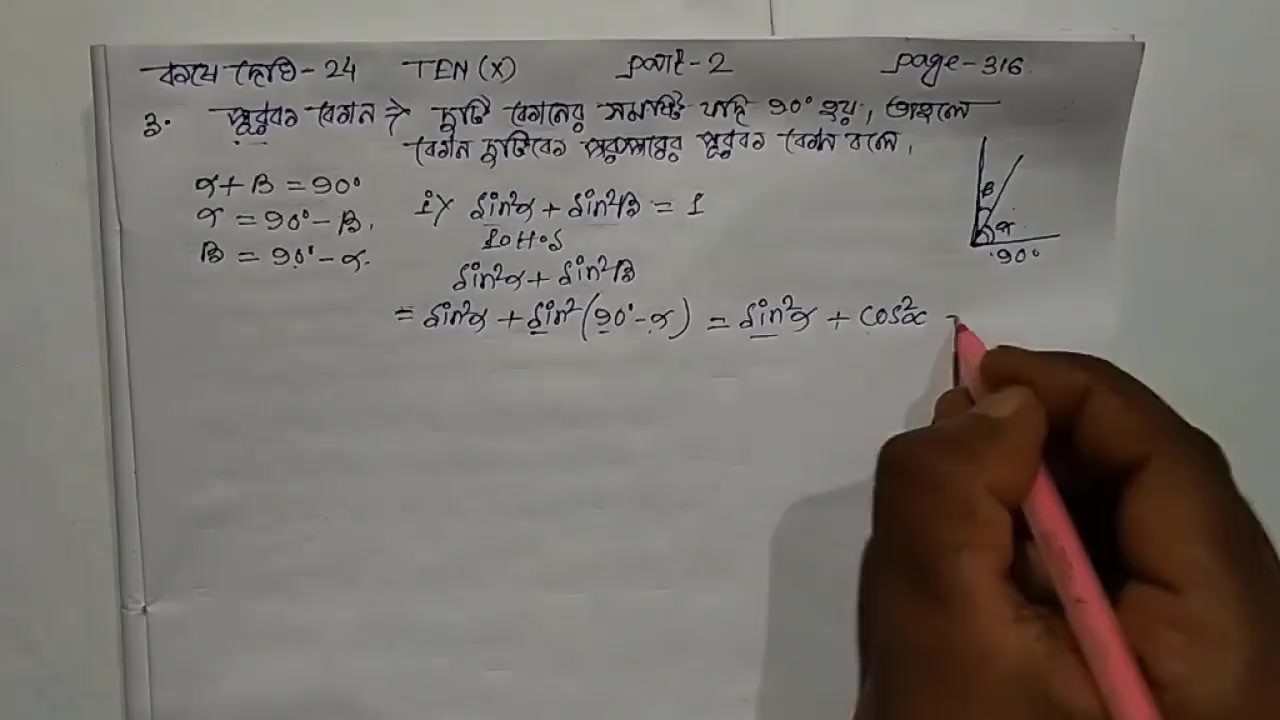 কষে দেখি - 24 TEN (X) part - 2 page - 316
3. পূরক কোণ → দুটি কোণের সমষ্টি যদি 90° হয়, তাহলে
কোণ দুটিকে পরস্পরের পূরক কোণ বলে।
α + β = 90°
α = 90° - β.
β = 90° - α.
i) sin²α + sin²β = 1
L.H.S
sin²α + sin²β
= sin²α + sin²(90° - α) = sin²α + cos²α
β
α
90°